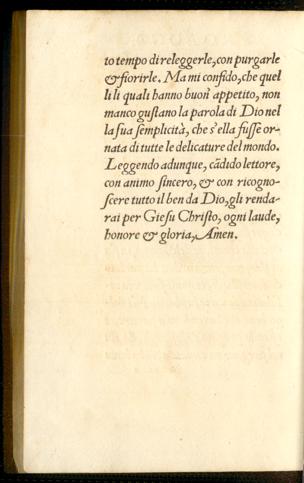 to tempo di releggerle, con purgarle
& fiorirle. Ma mi confido, che quel
li li quali hanno buon appetito, non
manco gustano la parola di Dio nel
la sua semplicità, che s'ella fusse or-
nata di tutte le delicature del mondo.
Leggendo adunque, cādido lettore,
con animo sincero, & con ricogno-
scere tutto il ben da Dio, gli renda-
rai per Giesu Christo, ogni laude,
honore & gloria, Amen.